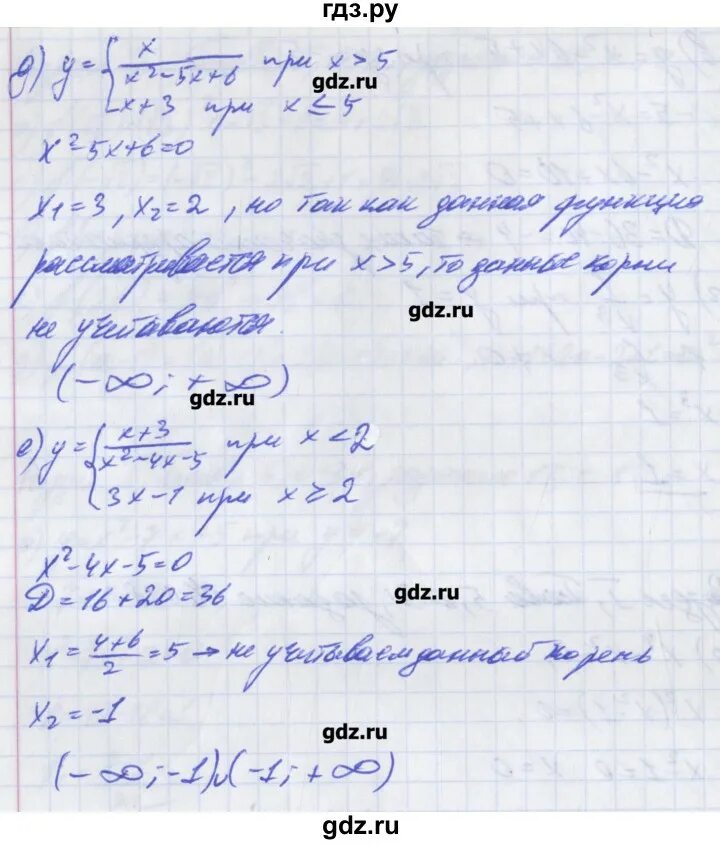 гдз.ру
д) y = { x / (x² - 5x + 6) при x > 5
gdz.ru
x + 3 при x ≤ 5
x² - 5x + 6 = 0
x₁ = 3, x₂ = 2, но так как данная функция
рассматривается при x > 5, то данные корни
gdz.ru
не учитываются.
(-∞; +∞)
gdz.ru
е) y = { x+3 / (x² - 4x - 5) при x < 2
3x - 1 при x ≥ 2
x² - 4x - 5 = 0
Д = 16 + 20 = 36
gdz.ru
x₁ = (4+6)/2 = 5 → не учитываем данный корень
x₂ = -1
gdz.ru
(-∞; -1)∪(-1; +∞)
gdz.ru